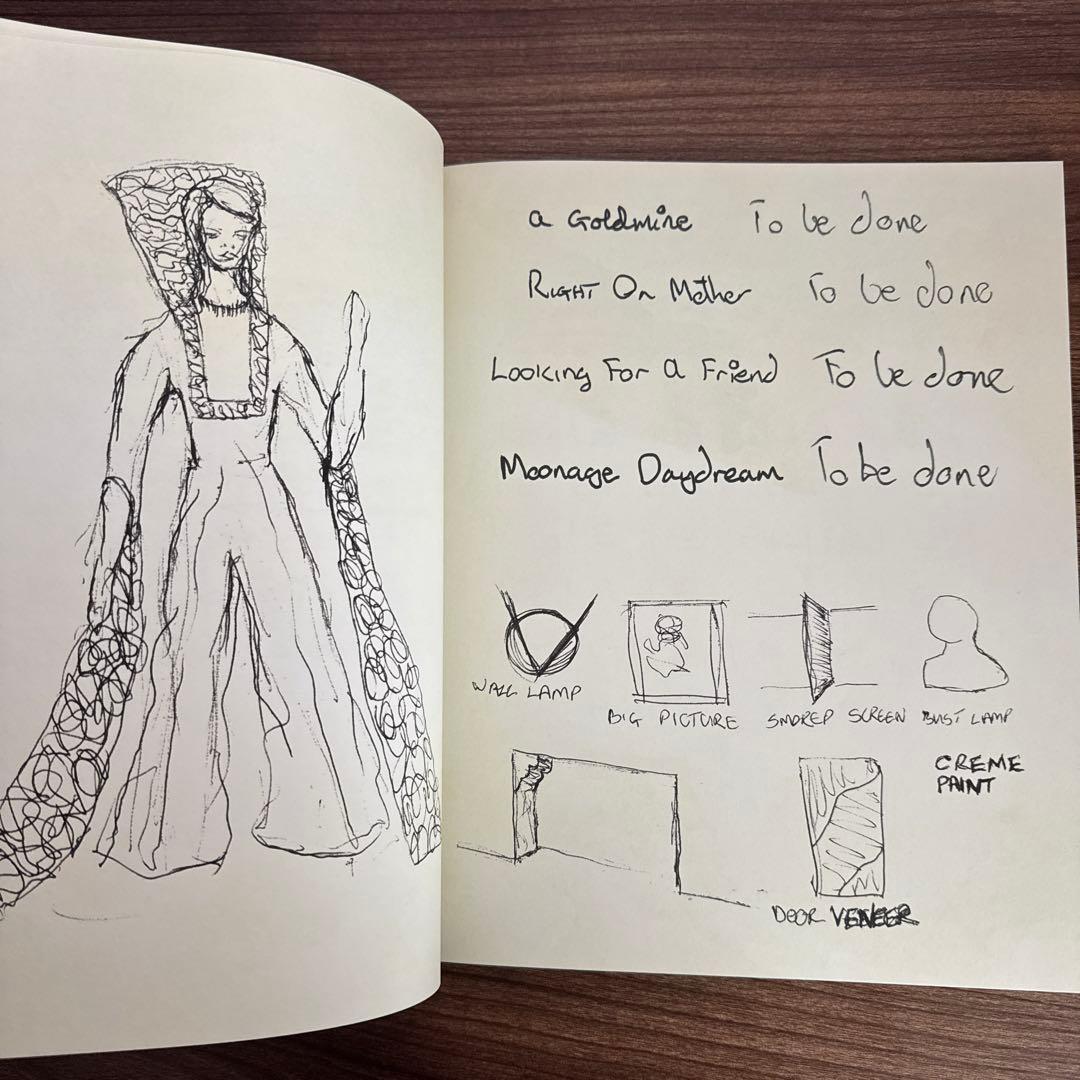 a Goldmine To be done
RIGHT On Mother To be done
Looking For a Friend To be done
Moonage Daydream To be done
WALL LAMP
BIG PICTURE
SNDREP SCREEN
BUST LAMP
CREME
PAINT
DOOR VENEER